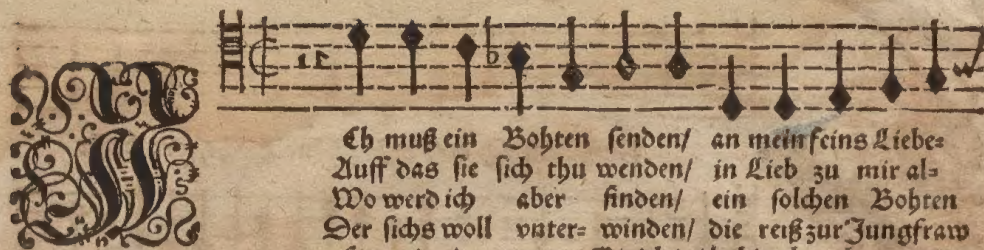 Ch muß ein Bohten senden/ an mein feins Liebe=
Auff das sie sich thu wenden/ in Lieb zu mir al=
Wo werd ich aber finden/ ein solchen Bohten
Der sichs woll vnter= winden/ die reiß zur Jungfraw